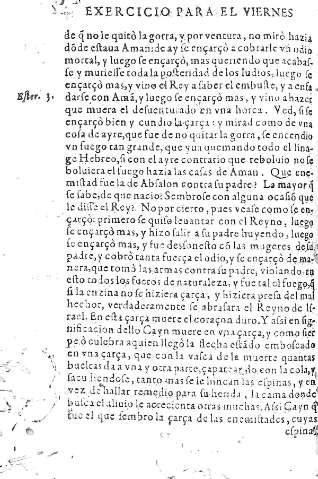 EXERCICIO PARA EL VIERNES
de q̃ no le quitò la gorra, y por ventura, no mirò hazia
dõ de estaua Aman: de ay se ençarçò a cobrarle vn odio
mortal, y luego se ençarçò mas, queriendo que acabas-
se y muriesse toda la posteridad de los Iudios: luego se
ençarçò mas, y vino el Rey a saber el embuste, y a enfa
Ester. 3. darse con Amã, y luego se ençarçò mas, y vino a hazer
que muera el desuenturado en vna horca. Ved, si se
ençarçò bien y cundio la çarça: y mirad como de vna
cosa de ayre, que fue de no quitar la gorra, se encendio
vn fuego tan grande, que yua quemando todo el lina-
ge Hebreo, si con el ayre contrario que reboluio no se
boluiera el fuego hazia las casas de Aman. Que ene-
mistad fue la de Absalon contra su padre? La mayor q̃
se sabe, de que nacio? Sembrose con alguna ocasiõ que
le diesse el Rey? No por cierto, pues vease como se en-
çarçò: primero se quiso leuantar con el Reyno, luego
se ençarçò mas, y hizo salir a su padre huyendo, luego
se ençarçò mas, y fue desonesto cõ las mugeres de su
padre, y cobrò tanta fuerça el odio, y se ençarçò de ma-
nera, que tomò las armas contra su padre, violando en
esto todos los fueros de naturaleza, y fue tal el fuego, q̃
si la enzina no se hiziera çarça, y hiziera presa del mal
hechor, verdaderamente se abrasara el Reyno de Is-
rael. En esta çarça muere el coraçon duro. Y assi en sig-
nificacion dello Cayn muere en vna çarça, y como sier
pe ò culebra a quien llegò la flecha estãdo emboscado
en vna çarça, que con la vasca de la muerte quantas
bueltas da a vna y otra parte, çapateando con la cola, y
sacudiendose, tanto mas se le hincan las espinas, y en
vez de hallar remedio para su herida, la cama donde
busca el aliuio le acrecienta otras muchas. Assi Cayn q̃
fue el que sembro la çarça de las enemistades, cuyas
espinas